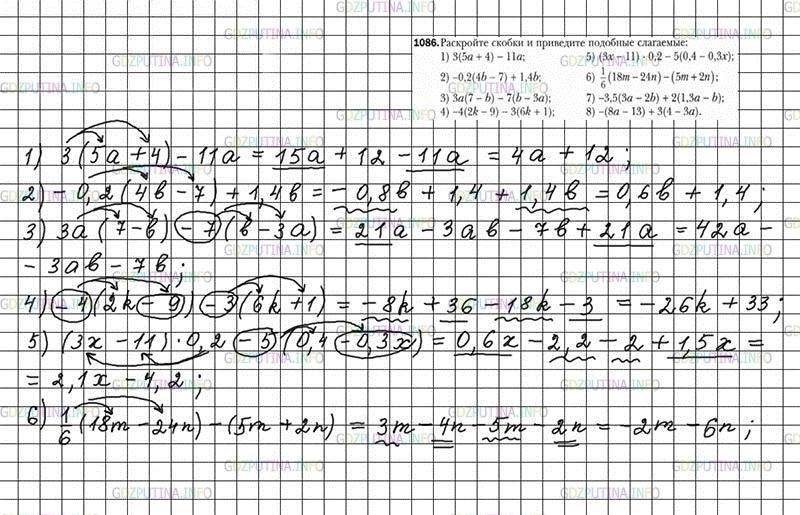 1086. Раскройте скобки и приведите подобные слагаемые:
1) 3(5a + 4) – 11a;
2) –0,2(4b – 7) + 1,4b;
3) 3a(7 – b) – 7(b – 3a);
4) –4(2k – 9) – 3(6k + 1);
5) (3x – 11) · 0,2 – 5(0,4 – 0,3x);
6) 1/6(18m – 24n) – (5m + 2n);
7) –3,5(3a – 2b) + 2(1,3a – b);
8) –(8a – 13) + 3(4 – 3a).
1) 3(5a + 4) - 11a = 15a + 12 - 11a = 4a + 12;
2) - 0,2(4b - 7) + 1,4b = - 0,8b + 1,4 + 1,4b = 0,6b + 1,4;
3) 3a(7 - b) - 7(b - 3a) = 21a - 3ab - 7b + 21a = 42a -
- 3ab - 7b;
4) - 4(2k - 9) - 3(6k + 1) = - 8k + 36 - 18k - 3 = - 26k + 33;
5) (3x - 11) · 0,2 - 5(0,4 - 0,3x) = 0,6x - 2,2 - 2 + 1,5x =
= 2,1x - 4,2;
6) 1/6(18m - 24n) - (5m + 2n) = 3m - 4n - 5m - 2n = - 2m - 6n;
GDZPUTINA.INFO